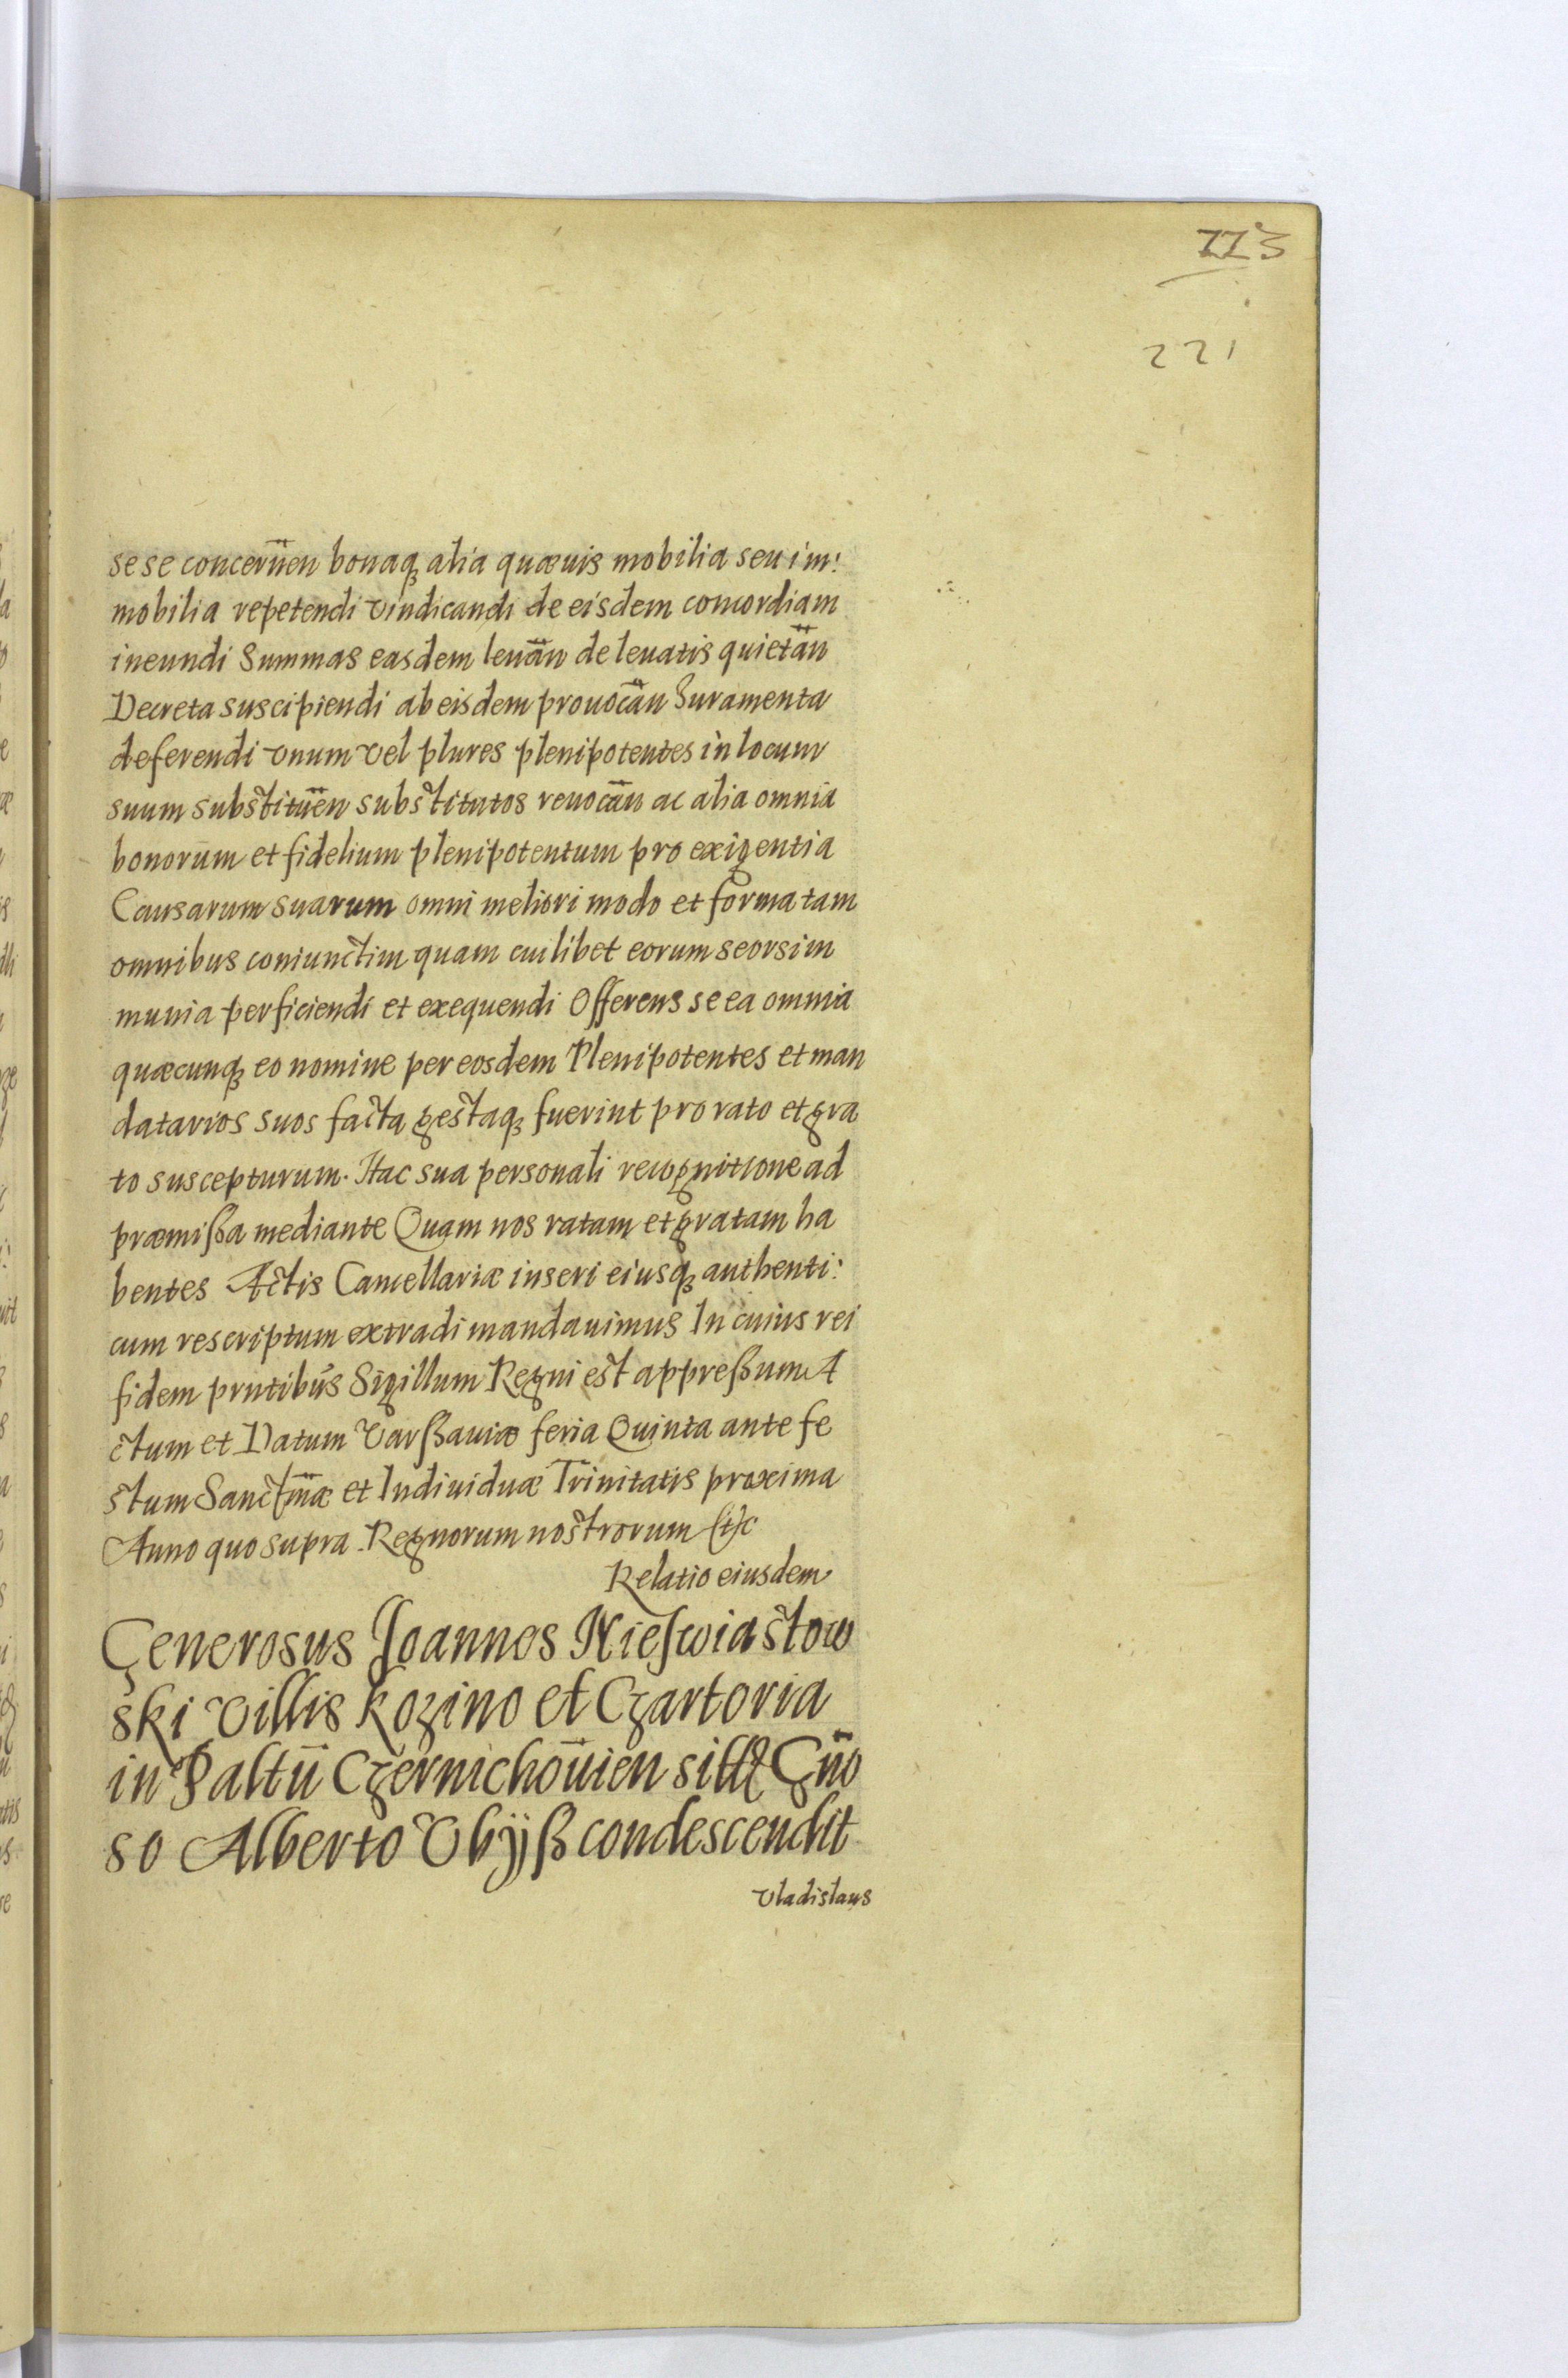 113
221
sese concerñen bonaq3 alia quæuis mobilia seu im:
mobilia repetendi vindicandi de eisdem concordiam
ineundi Summas easdem leuãn de leuatis quietãn
Decreta suscipiendi ab eisdem prouocãn Iuramenta
deferendi vnum vel plures plenipotentes in locum
suum substituẽn substitutos reuocãn ac alia omnia
bonorum et fidelium plenipotentum pro exigentia
Causarum suarum omni meliori modo et forma tam
omnibus coniunctim quam cuilibet eorum seorsim
munia perficiendi et exequendi Offerens se ea omnia
quæcunq3 eo nomine per eosdem Plenipotentes et man
datarios suos facta gestaq3 fuerint pro rato et gra
to suscepturum. Hac sua personali recognitione ad
præmißa mediante Quam nos ratam et gratam ha
bentes Actis Cancellariæ inseri eiusq3 authenti:
cum rescriptum extradi mandauimus In cuius rei
fidem pñtibus Sigillum Regni est appreßum A
ctum et Datum Varßauiæ feria Quinta ante fe
stum Sanctm̃æ et Indiuiduæ Trinitatis proxima
Anno quo supra. Regnorum nostrorum &c
Relatio eiusdem
Generosus Ioannes Nieswiastow
ski Villis Kozino et Czartoria
in Paltũ Czernichouien sitis Gño
so Alberto Vbÿß condescendit
Vladislaus